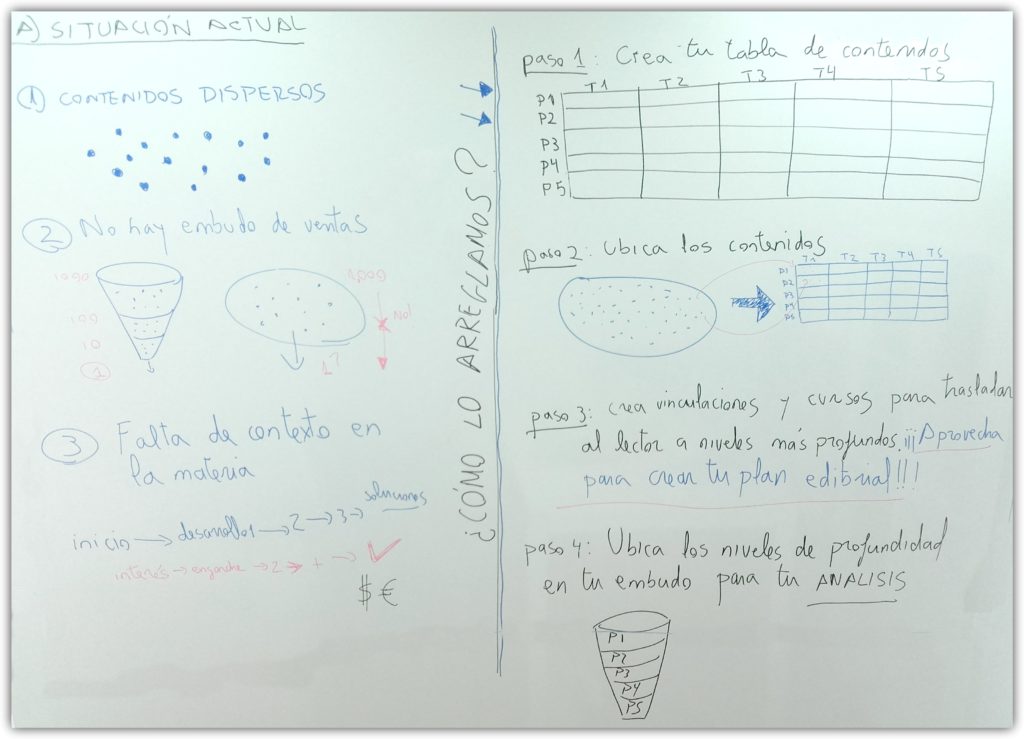 A) SITUACIÓN ACTUAL
1 CONTENIDOS DISPERSOS
2 No hay embudo de ventas
1000
100
10
1
1000
No!
1?
3 Falta de contexto en
la materia
inicio → desarrollo1 → 2 → 3 → soluciones
interés → enganche → 2 → + →
$ €
¿CÓMO LO ARREGLAMOS?
paso 1: Crea tu tabla de contenidos
T1 T2 T3 T4 T5
P1
P2
P3
P4
P5
paso 2: Ubica los contenidos
T1 T2 T3 T4 T5
P1
P2
P3
P4
P5
paso 3: crea vinculaciones y cursos para trasladar
al lector a niveles más profundos. ¡¡¡Aprovecha
para crear tu plan editorial!!!
paso 4: Ubica los niveles de profundidad
en tu embudo para tu ANALISIS
P1
P2
P3
P4
P5